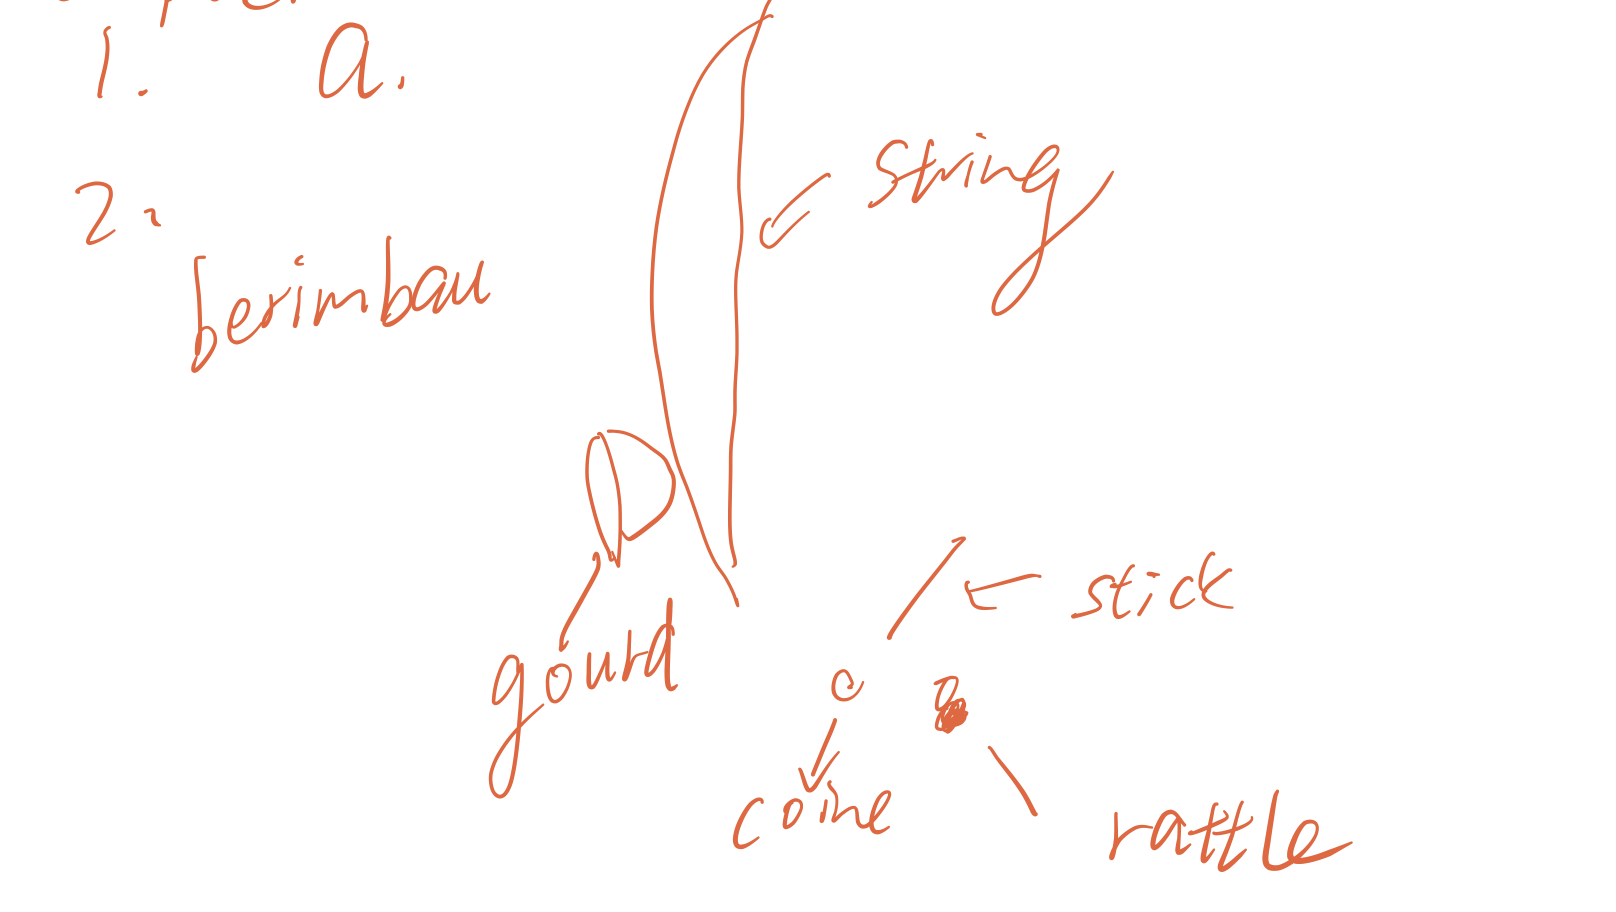 1. a.
2.
berimbau
string
gourd
stick
coine
rattle